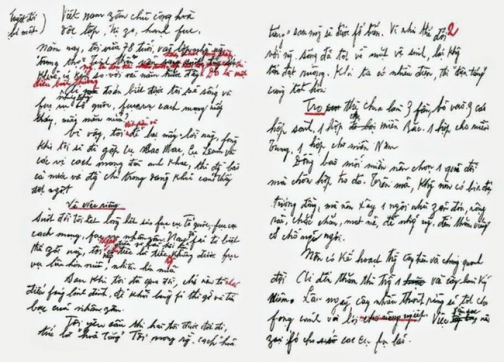 Việt nam zân chủ cộng hoà
độc lập, tự zo, hạnh fúc
Năm nay, tôi vừa 78 tuổi, vào lớp những
trung thọ
khoẻ, so với vài năm trước đây
đoán biết được tôi sẽ sống và
fục vụ tổ quốc, fục vụ cách mạng mấy
tháng, mấy năm nữa?
Vì vậy, tôi để lại mấy lời này, fòng
khi tôi sẽ đi gặp cụ Mác, cụ Lênin và
các vị cách mạng đàn anh khác, thì đồng bào
cả nước và đồng chí trong đảng khỏi cảm thấy
đột ngột
Về việc riêng
Suốt đời tôi hết lòng hết sức fục vụ tổ quốc, fục vụ
cách mạng, fục vụ nhân zân. Nay fải từ biệt
thế zới này, tôi tiếc là không được fục
vụ lâu hơn nữa, nhiều hơn nữa
Sau khi tôi đã qua đời, chớ nên tổ chức
điếu fúng linh đình, để khỏi lãng fí thì giờ và tiền
bạc của nhân zân.
Tôi yêu cầu thi hài tôi được đốt đi,
tức là "hoả táng". Tôi mong rằng cách hoả
2
táng sau này sẽ được fổ bến. Vì như thế đối
với người sống đã tốt về mặt vệ sinh, lại không
tốn đất ruộng. Khi ta có nhiều điện, thì "điện táng"
càng tốt hơn
Tro thì chia làm 3 fần, bỏ vào 3 cái
hộp sành, 1 hộp cho miền Bắc. 1 hộp cho miền
Trung, 1 hộp cho miền Nam
Đồng bào mỗi miền nên chọn 1 quả đồi
mà chôn hộp tro đó. Trên mả, không nên có bia đá
tượng đồng, mà nên xây 1 ngôi nhà giản đơn, rộng
rãi, chắc chắn, mát mẻ, để những người đến thăm viếng
có chỗ nghỉ ngơi.
Nên có kế hoạch trồng cây trên và chung quanh
đồi. Ai đến thăm thì trồng 1 cây làm kỷ
niệm. Lâu ngày, cây nhiều thành rừng sẽ tốt cho
fong cảnh và lợi cho nông nghiệp. Việc
zao fó cho các cụ fụ lão.